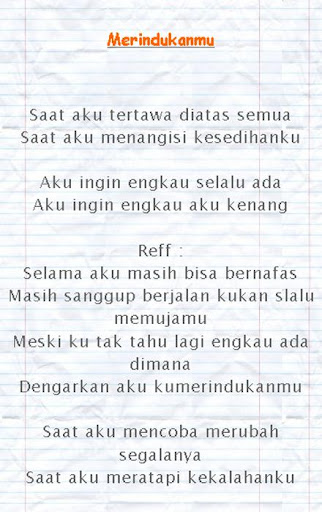 Merindukanmu
Saat aku tertawa diatas semua
Saat aku menangisi kesedihanku
Aku ingin engkau selalu ada
Aku ingin engkau aku kenang
Reff :
Selama aku masih bisa bernafas
Masih sanggup berjalan kukan slalu
memujamu
Meski ku tak tahu lagi engkau ada
dimana
Dengarkan aku kumerindukanmu
Saat aku mencoba merubah
segalanya
Saat aku meratapi kekalahanku